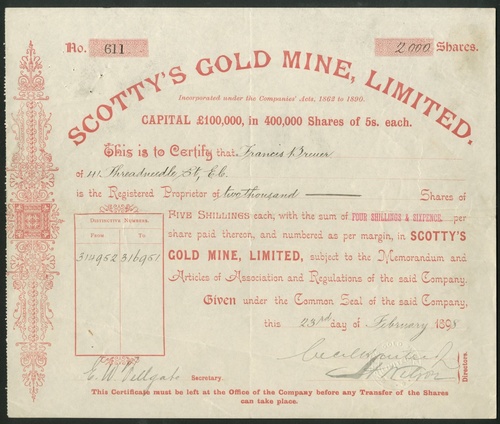 No. 611 2000 Shares.
SCOTTY'S GOLD MINE, LIMITED.
Incorporated under the Companies' Acts, 1862 to 1890.
CAPITAL £100,000, in 400,000 Shares of 5s. each.
This is to Certify that Francis
of Threadneedle St, E.C.
is the Registered Proprietor of two thousand Shares of
FIVE SHILLINGS each, with the sum of FOUR SHILLINGS & SIXPENCE per
share paid thereon, and numbered as per margin, in SCOTTY'S
GOLD MINE, LIMITED, subject to the Memorandum and
Articles of Association and Regulations of the said Company.
Given under the Common Seal of the said Company,
this 23rd day of February 1898
DISTINCTIVE NUMBERS.
FROM TO
314952 316951
Directors.
E. W. Secretary.
This Certificate must be left at the Office of the Company before any Transfer of the Shares
can take place.